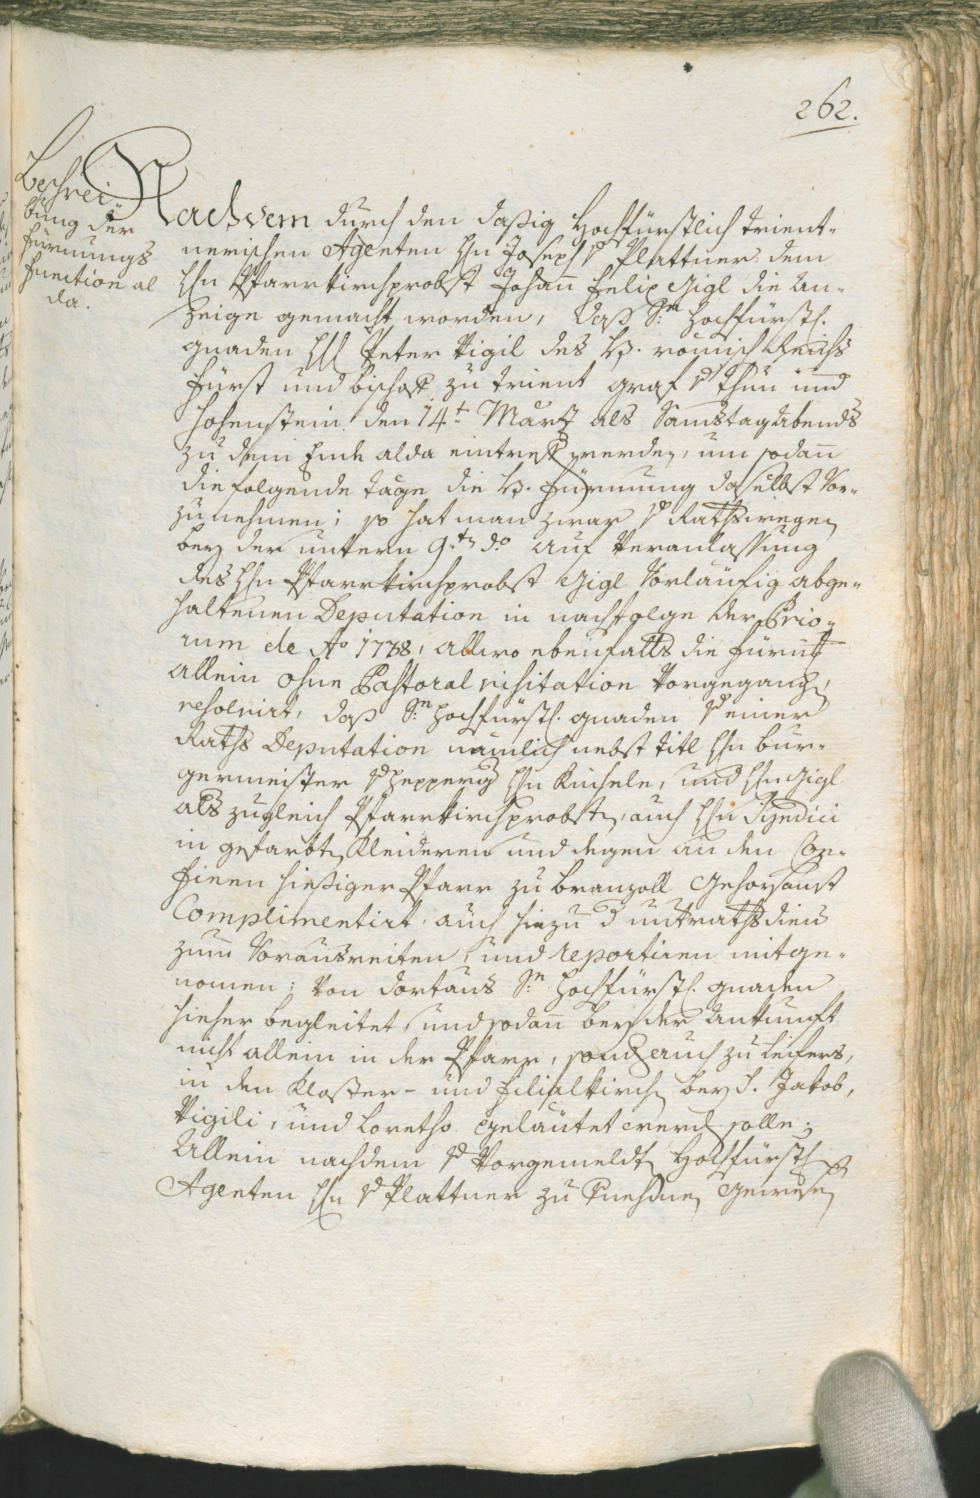 262.
Beschrei-
bung der
Fürmungs
Function al
da.
Nachdem durch den dasig Hochfürstlich Trient-
nerischen Agenten Hn Joseph v Plattner dem
Hn Pfarrkirchprobst Johan̅ Felix Gigl die An-
zeige gemacht worden, daß Sr. Hochfürstl.
gnaden H H Peter Vigil des H. römisch Reichs
Fürst und bischof zu Trient graf v Thun und
Hohenstein den 14t. Martz als Samstag Abends
zu dem Ende alda eintreff werden, um sodan̅
die folgende Täge die H. Fürmung daselbst Vor-
zunehmen; so hat man zwar v Rathswegen
bey der untern 9.ten do. auf Veranlassung
des Hn Pfarrkirchprobst Gigl Vorläufig abge-
haltenen Deputation in nachfolge der Prio-
rum de Ao 1778, allwo ebenfalls die Fürmg
allein ohne Pastoral visitation Vorgegang,
resolvirt, daß Sr. Hochfürstl. gnaden v einer
Raths Deputation nämlich nebst titl Hn bur-
germeister v Hepperg Hn Kuchele, und Hn Gigl
als zugleich Pfarrkirchprobsten, auch Hn Syndici
in gefarbten Kleideren und degen an den Con-
finen hiesiger Pfarr zu branzoll Gehorsamst
Complimentirt, auch hiezu d untrathsdien
zum Vorausreiten, und reportiren mitge-
nomen: Von dortaus Sr. Hochfürstl. gnaden
hieher begleitet, und sodan̅ bey der Ankunft
nicht allein in der Pfarr, sond auch zu Leifers,
in den Kloster- und Filialkirch bey S. Jakob,
Vigili, und Loretho geläutet werd solle;
Allein nachdem v Vorgemeldt Hochfürstl
Agenten Hn v Plattner zu Vernehmen Gewesen